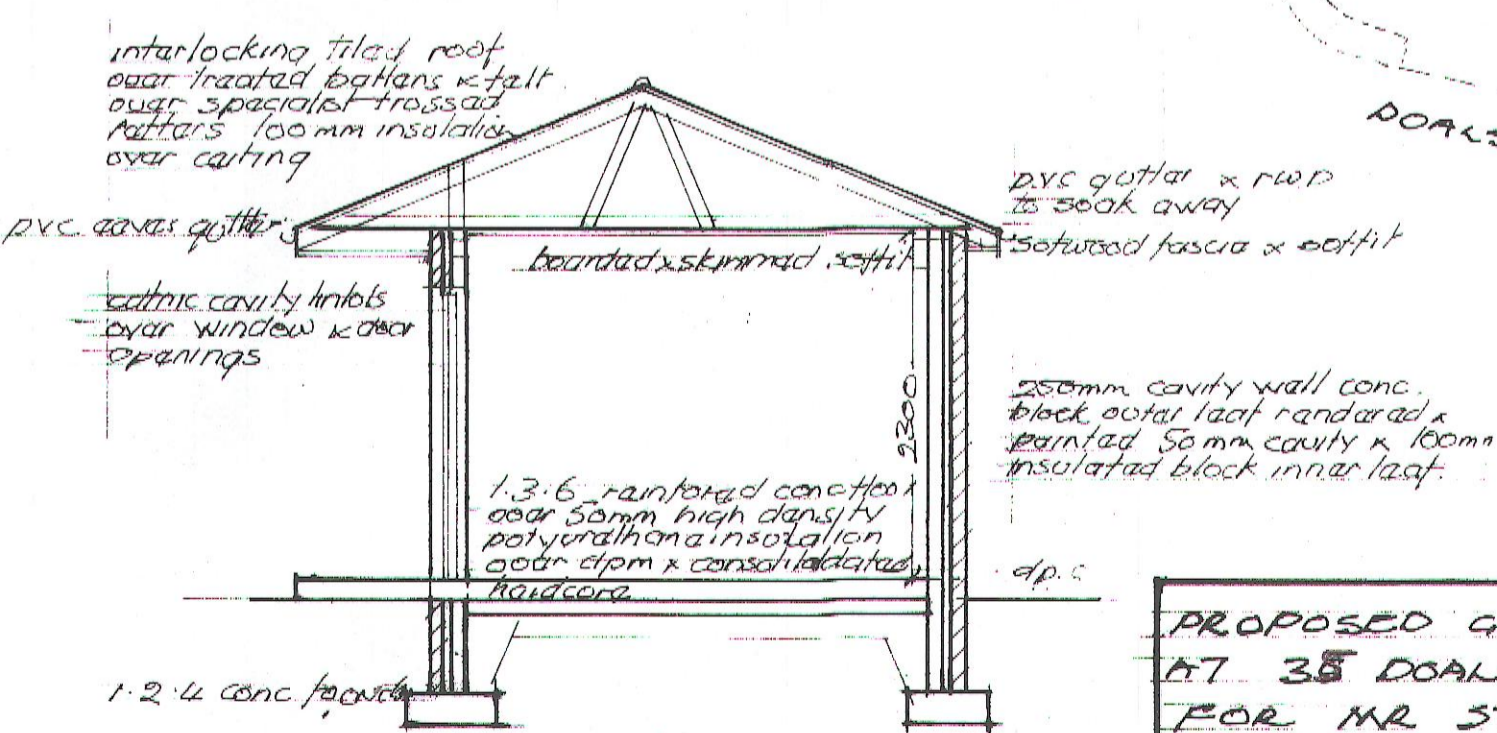 interlocking tiled roof
over treated battens & felt
over specialist trossed
rafters 100mm insulation
over ceiling
pvc eaves gutter
catnic cavity lintols
over window & door
openings
1.2.4 conc founds
boarded & skimmed soffit
2300
1.3.6 reinforced conc floor
over 50mm high density
polyurethane insulation
over dpm & consolidated
hardcore
DOALS
pvc gutter & rwp
to soak away
sotwood fascia & soffit
250mm cavity wall conc.
block outer leaf rendered &
painted 50mm cavity & 100mm
insulated block inner leaf.
dp.c
PROPOSED G
AT 35 DOAL
FOR MR ST